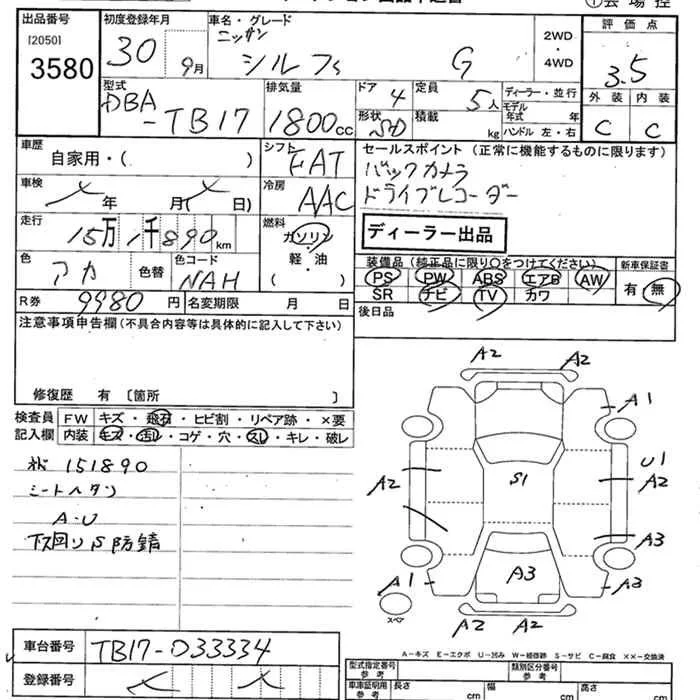 ①会場控
出品番号
[2050]
3580
初度登録年月
30 9月
車名・グレード
ニッサン
シルフィ G
2WD
・
4WD
評価点
3.5
外装 内装
C C
型式
DBA
-TB17
排気量
1800cc
ドア 4
形状 SD
定員 5人
積載 kg
ディーラー・並行
モデル
年式 年
ハンドル 左・右
車歴
自家用・( )
シフト
FAT
セールスポイント (正常に機能するものに限ります)
バックカメラ
ドライブレコーダー
車検
年 月( 日)
冷房
AAC
走行
15万1千890km
燃料
ガソリン
・
軽・油
( )
ディーラー出品
色
アカ
色替
色コード
NAH
装備品 (純正品に限り○をつけてください)
PS PW ABS エアB AW
SR ナビ TV カワ
新車保証書
有 無
R券 9980円
名変期限 月 日
後日品
注意事項申告欄(不具合内容等は具体的に記入して下さい)
修復歴 有 〔箇所 〕
検査員
記入欄
FW キズ・飛石・ヒビ割・リペア跡・×要
内装 キズ・汚レ・コゲ・穴・スレ・キレ・破レ
151890
シートヘタリ
A・U
下回りS防錆
A2 A2
A1
U1
A2 S1 A2
A3
A1 A3 A3
スペア
A2 A2
A-キズ E-エクボ U-凹み W-補修跡 S-サビ C-腐食 ××-交換済
車台番号 TB17-033334
登録番号
型式指定番号
参考
類別区分番号
参考
車庫証明用
参考
長さ cm
幅 cm
高さ cm